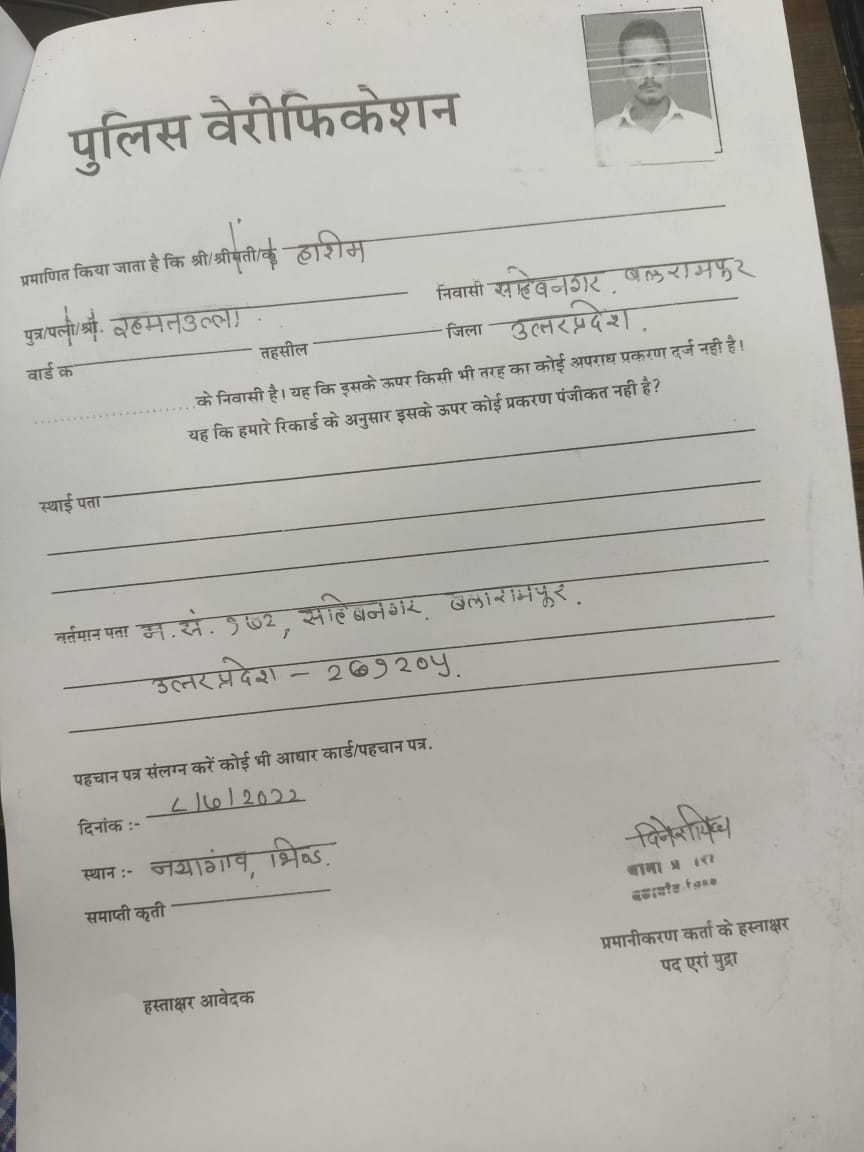 पुलिस वेरीफिकेशन
प्रमाणित किया जाता है कि श्री/श्रीमती/कु हाशिम
पुत्र/पत्नी/श्री. रहमतउल्ला. निवासी साहेबनगर. बलरामपुर
वार्ड क्र तहसील जिला उत्तरप्रदेश.
के निवासी है। यह कि इसके ऊपर किसी भी तरह का कोई अपराध प्रकरण दर्ज नही है।
यह कि हमारे रिकार्ड के अनुसार इसके ऊपर कोई प्रकरण पंजीकत नही है?
स्थाई पता
वर्तमान पता म.सं. १७२, साहिबनगर. बलारामपूर.
उत्तरप्रदेश - 2७१20५.
पहचान पत्र संलग्न करें कोई भी आधार कार्ड/पहचान पत्र.
दिनांक :- ८/७/2022
स्थान :- नयागांव, भिण्ड.
समाप्ती कृती
प्रमानीकरण कर्ता के हस्ताक्षर
पद एरां मुद्रा
हस्ताक्षर आवेदक